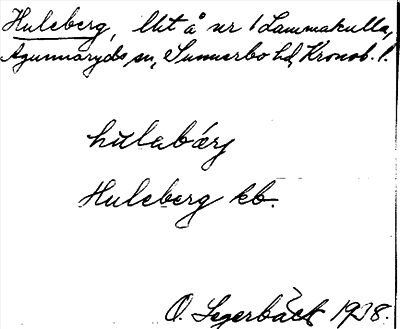 Huleberg, lht å nr 1 Lammakulla,
Agunnaryds sn, Sunnerbo hd, Kronob. l.
hulabärj
Huleberg kb.
O. Segerbäck 1938.